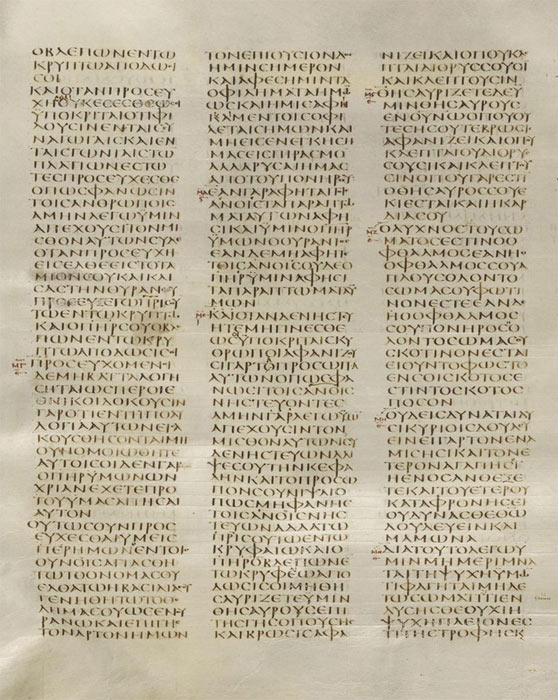 ΟΒΛΕΠΩΝΕΝΤΩ
ΚΡΥΠΤΩΑΠΟΔΩϹΙ
ϹΟΙ
ΚΑΙΟΤΑΝΠΡΟϹΕΥ
ΧΗΟΥΚΕϹΕϹΘΕΩϹΟΙ
ΥΠΟΚΡΙΤΑΙΟΤΙΦΙ
ΛΟΥϹΙΝΕΝΤΑΙϹΥ
ΝΑΓΩΓΑΙϹΚΑΙΕΝ
ΤΑΙϹΓΩΝΙΑΙϹΤΩ
ΠΛΑΤΙΩΝΕϹΤΩ
ΤΕϹΠΡΟϹΕΥΧΕϹΘΕ
ΟΠΩϹΦΑΝΩϹΙΝ
ΤΟΙϹΑΝΘΡΩΠΟΙϹ
ΑΜΗΝΛΕΓΩΥΜΙΝ
ΑΠΕΧΟΥϹΙΤΟΝΜΙ
ϹΘΟΝΑΥΤΩΝϹΥΔΕ
ΟΤΑΝΠΡΟϹΕΥΧΗ
ΕΙϹΕΛΘΕΕΙϹΤΟΤΑ
ΜΙΟΝϹΟΥΚΑΙΚΛΙ
ϹΑϹΤΗΝΘΥΡΑΝϹΟΥ
ΠΡΟϹΕΥΞΕΤΩΠΡΙϹΟΥ
ΤΩΕΝΤΩΚΡΥΠΤΩ
ΚΑΙΟΠΗΡϹΟΥΟΒΛΕ
ΠΩΝΕΝΤΩΚΡΥ
ΠΤΩΑΠΟΔΩϹΙϹΟΙ
ΜΓ ΠΡΟϹΕΥΧΟΜΕΝΟΙ
ΔΕΜΗΒΑΤΤΑΛΟΓΗ
ϹΗΤΑΙΩϹΠΕΡΟΙΕ
ΘΝΙΚΟΙΔΟΚΟΥϹΙΝ
ΓΑΡΟΤΙΕΝΤΗΠΟΛΥ
ΛΟΓΙΑΑΥΤΩΝΕΙϹΑ
ΚΟΥϹΘΗϹΟΝΤΑΙΜΗ
ΟΥΝΟΜΟΙΩΘΗΤΕ
ΑΥΤΟΙϹΟΙΔΕΝΓΑΡ
ΟΠΗΡΥΜΩΝΩΝ
ΧΡΙΑΝΕΧΕΤΕΠΡΟ
ΤΟΥΥΜΑϹΑΙΤΗϹΑΙ
ΑΥΤΟΝ
ΟΥΤΩϹΟΥΝΠΡΟϹ
ΕΥΧΕϹΘΑΙΥΜΕΙϹ
ΠΕΡΗΜΩΝΕΝΤΟΙϹ
ΟΥΝΟΙϹΑΓΙΑϹΘΗ
ΤΩΤΟΟΝΟΜΑϹΟΥ
ΕΛΘΑΤΩΗΒΑϹΙΛΙΑϹΟΥ
ΓΕΝΗΘΗΤΩΤΟΘΕ
ΛΗΜΑϹΟΥΩϹΕΝΟΥ
ΡΑΝΩΚΑΙΕΠΙΓΗϹ
ΤΟΝΑΡΤΟΝΗΜΩΝ
ΤΟΝΕΠΙΟΥϹΙΟΝΔΟϹ
ΗΜΙΝϹΗΜΕΡΟΝ
ΚΑΙΑΦΕϹΗΜΙΝΤΑ
ΟΦΙΛΗΜΑΤΑΗΜΩ
ΩϹΚΑΙΗΜΕΙϹΑΦΗ
ΚΑΜΕΝΤΟΙϹΟΦΙ
ΛΕΤΑΙϹΗΜΩΝΚΑΙ
ΜΗΕΙϹΕΝΕΓΚΗϹΗ
ΜΑϹΕΙϹΠΙΡΑϹΜΟ
ΑΛΛΑΡΥϹΑΙΗΜΑϹ
ΑΠΟΤΟΥΠΟΝΗΡΟΥ
ΜΔ ΕΑΝΓΑΡΑΦΗΤΑΙΤΟΙϹ
ΑΝΟΙϹΤΑΠΑΡΑΠΤΩ
ΜΑΤΑΑΥΤΩΝΑΦΗ
ϹΙΚΑΙΥΜΙΝΟΠΗΡ
ΥΜΩΝΟΟΥΡΑΝΙΟϹ
ΕΑΝΔΕΜΗΑΦΗΤΕ
ΤΟΙϹΑΝΟΙϹΟΥΔΕΟ
ΠΗΡΥΜΙΝΑΦΗϹΙ
ΤΑΠΑΡΑΠΤΩΜΑΤΑΥ
ΜΩΝ
ΜΕ ΚΑΙΟΤΑΝΝΗϹΤΕΥ
ΗΤΕΜΗΓΙΝΕϹΘΕ
ΩϹΥΠΟΚΡΙΤΑΙϹΚΥ
ΘΡΩΠΟΙΑΦΑΝΙΖΟΥ
ϹΙΓΑΡΤΟΠΡΟϹΩΠΟ
ΑΥΤΩΝΟΠΩϹΦΑ
ΝΩϹΙΤΟΙϹΑΝΟΙϹ
ΝΗϹΤΕΥΟΝΤΕϹ
ΑΜΗΝΓΑΡΛΕΓΩΥΜΙ
ΑΠΕΧΟΥϹΙΝΤΟΝ
ΜΙϹΘΟΝΑΥΤΩΝϹΥ
ΔΕΝΗϹΤΕΥΩΝΑΛΙ
ΨΕϹΟΥΤΗΝΚΕΦΑ
ΛΗΝΚΑΙΤΟΠΡΟϹΩ
ΠΟΝϹΟΥΝΙΨΑΙΟ
ΠΩϹΜΗΦΑΝΗϹ
ΤΟΙϹΑΝΟΙϹΝΗϹ
ΤΕΥΩΝΑΛΛΑΤΩ
ΠΡΙϹΟΥΤΩΕΝΤΩ
ΚΡΥΦΑΙΩΚΑΙΟ
ΠΗΡΟΒΛΕΠΩΝΕ
ΤΩΚΡΥΦΕΩΑΠΟ
ΔΩϹΙϹΟΙΜΗΘΗ
ϹΑΥΡΙΖΕΤΕΥΜΙΝ
ΘΗϹΑΥΡΟΥϹΕΠΙ
ΤΗϹΓΗϹΟΠΟΥϹΗϹ
ΚΑΙΒΡΩϹΙϹΑΦΑ
ΝΙΖΕΙΚΑΙΟΠΟΥΚΛΕ
ΠΤΑΙΔΙΟΡΥϹϹΟΥϹΙ
ΚΑΙΚΛΕΠΤΟΥϹΙΝ
ΜϚ ΘΗϹΑΥΡΙΖΕΤΕΔΕΥ
ΜΙΝΘΗϹΑΥΡΟΥϹ
ΕΝΟΥΝΩΟΠΟΥΟΥ
ΤΕϹΗϹΟΥΤΕΒΡΩϹΙϹ
ΑΦΑΝΙΖΕΙΚΑΙΟΠΟΥ
ΚΛΕΠΤΑΙΟΥΔΙΟΡΥϹ
ϹΟΥϹΙΚΑΙΚΛΕΠΤΟΥ
ϹΙΝΟΠΟΥΓΑΡΕϹΤΙ
ΟΘΗϹΑΥΡΟϹϹΟΥΕ
ΚΙΕϹΤΑΙΚΑΙΗΚΑΡ
ΔΙΑϹΟΥ
ΜΖ ΟΛΥΧΝΟϹΤΟΥϹΩ
ΜΑΤΟϹΕϹΤΙΝΟΟ
ΦΘΑΛΜΟϹΕΑΝΗΟ
ΟΦΘΑΛΜΟϹϹΟΥΑ
ΠΛΟΥϹΟΛΟΝΤΟ
ϹΩΜΑϹΟΥΦΩΤΙ
ΝΟΝΕϹΤΕΕΑΝΔΕ
ΗΟΟΦΘΑΛΜΟϹ
ϹΟΥΠΟΝΗΡΟϹΟ
ΛΟΝΤΟϹΩΜΑϹΟΥ
ϹΚΟΤΙΝΟΝΕϹΤΑΙ
ΕΙΟΥΝΤΟΦΩϹΤΟ
ΕΝϹΟΙϹΚΟΤΟϹΕ
ϹΤΙΝΤΟϹΚΟΤΟϹ
ΠΟϹΟΝ
ΜΗ ΟΥΔΕΙϹΔΥΝΑΤΑΙΔΥ
ϹΙΚΥΡΙΟΙϹΔΟΥΛΕΥ
ΕΙΝΕΙΓΑΡΤΟΝΕΝΑ
ΜΙϹΗϹΙΚΑΙΤΟΝΕ
ΤΕΡΟΝΑΓΑΠΗϹΙ
ΗΕΝΟϹΑΝΘΕΞΕ
ΤΕΚΑΙΤΟΥΕΤΕΡΟΥ
ΚΑΤΑΦΡΟΝΗϹΕΙ
ΟΥΔΥΝΑϹΘΕΘΩ
ΔΟΥΛΕΥΕΙΝΚΑΙ
ΜΑΜΩΝΑ
ΜΘ ΔΙΑΤΟΥΤΟΛΕΓΩΥ
ΜΙΝΜΗΜΕΡΙΜΝΑ
ΤΑΙΤΗΨΥΧΗΥΜΩ
ΤΙΦΑΓΗΤΑΙΜΗΔΕ
ΤΩϹΩΜΑΤΙΤΙΕΝ
ΔΥϹΗϹΘΕΟΥΧΙΗ
ΨΥΧΗΠΛΕΙΟΝΕϹ
ΤΙΤΗϹΤΡΟΦΗϹΚΑΙ